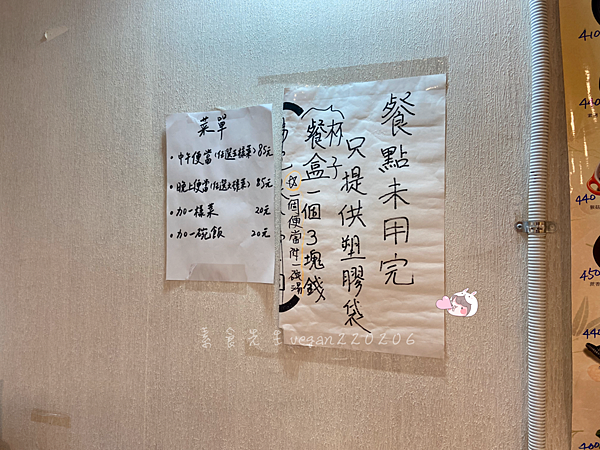 菜單
• 中午便當(任選5樣菜) 85元
• 晚上便當(任選5樣菜) 85元
• 加一樣菜 20元
• 加一碗飯 20元
餐點未用完
只提供塑膠袋
杯子
餐盒一個3塊錢
一個便當附一碗湯
素食先生vegan220206
410
440
450
440
400